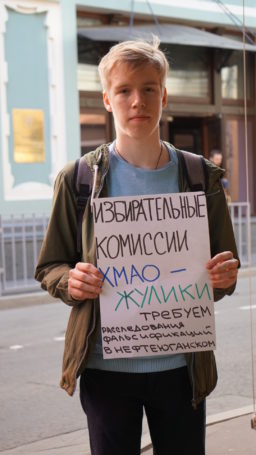 ИЗБИРАТЕЛЬНЫЕ
КОМИССИИ
ХМАО –
ЖУЛИКИ
ТРЕБУЕМ
РАССЛЕДОВАНИЯ
ФАЛЬСИФИКАЦИЙ
В НЕФТЕЮГАНСКОМ